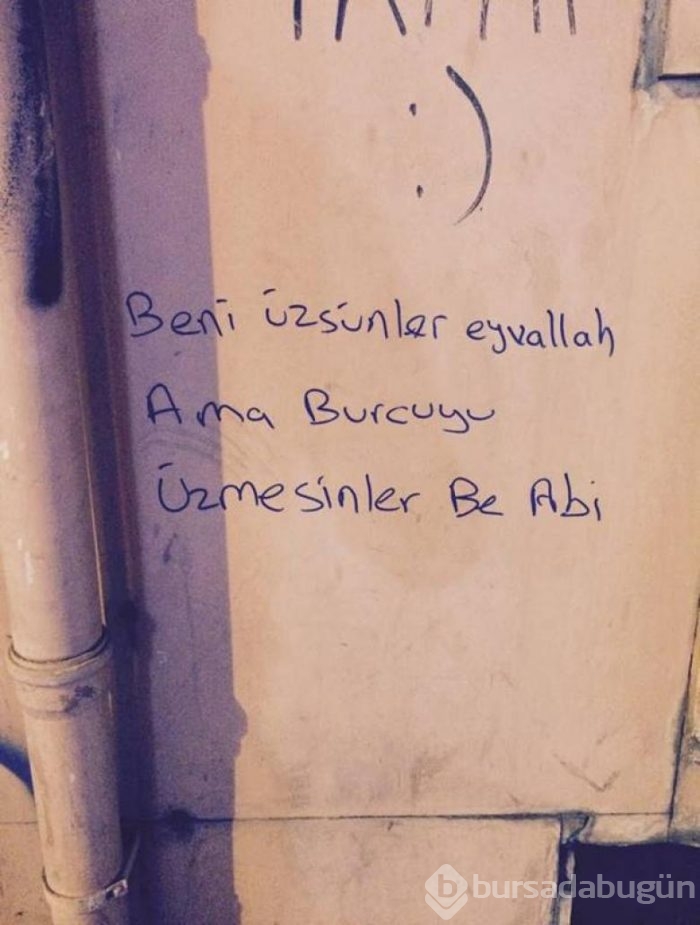 :)
Beni üzsünler eyvallah
Ama Burcuyu
Üzmesinler Be Abi
bursadabugün